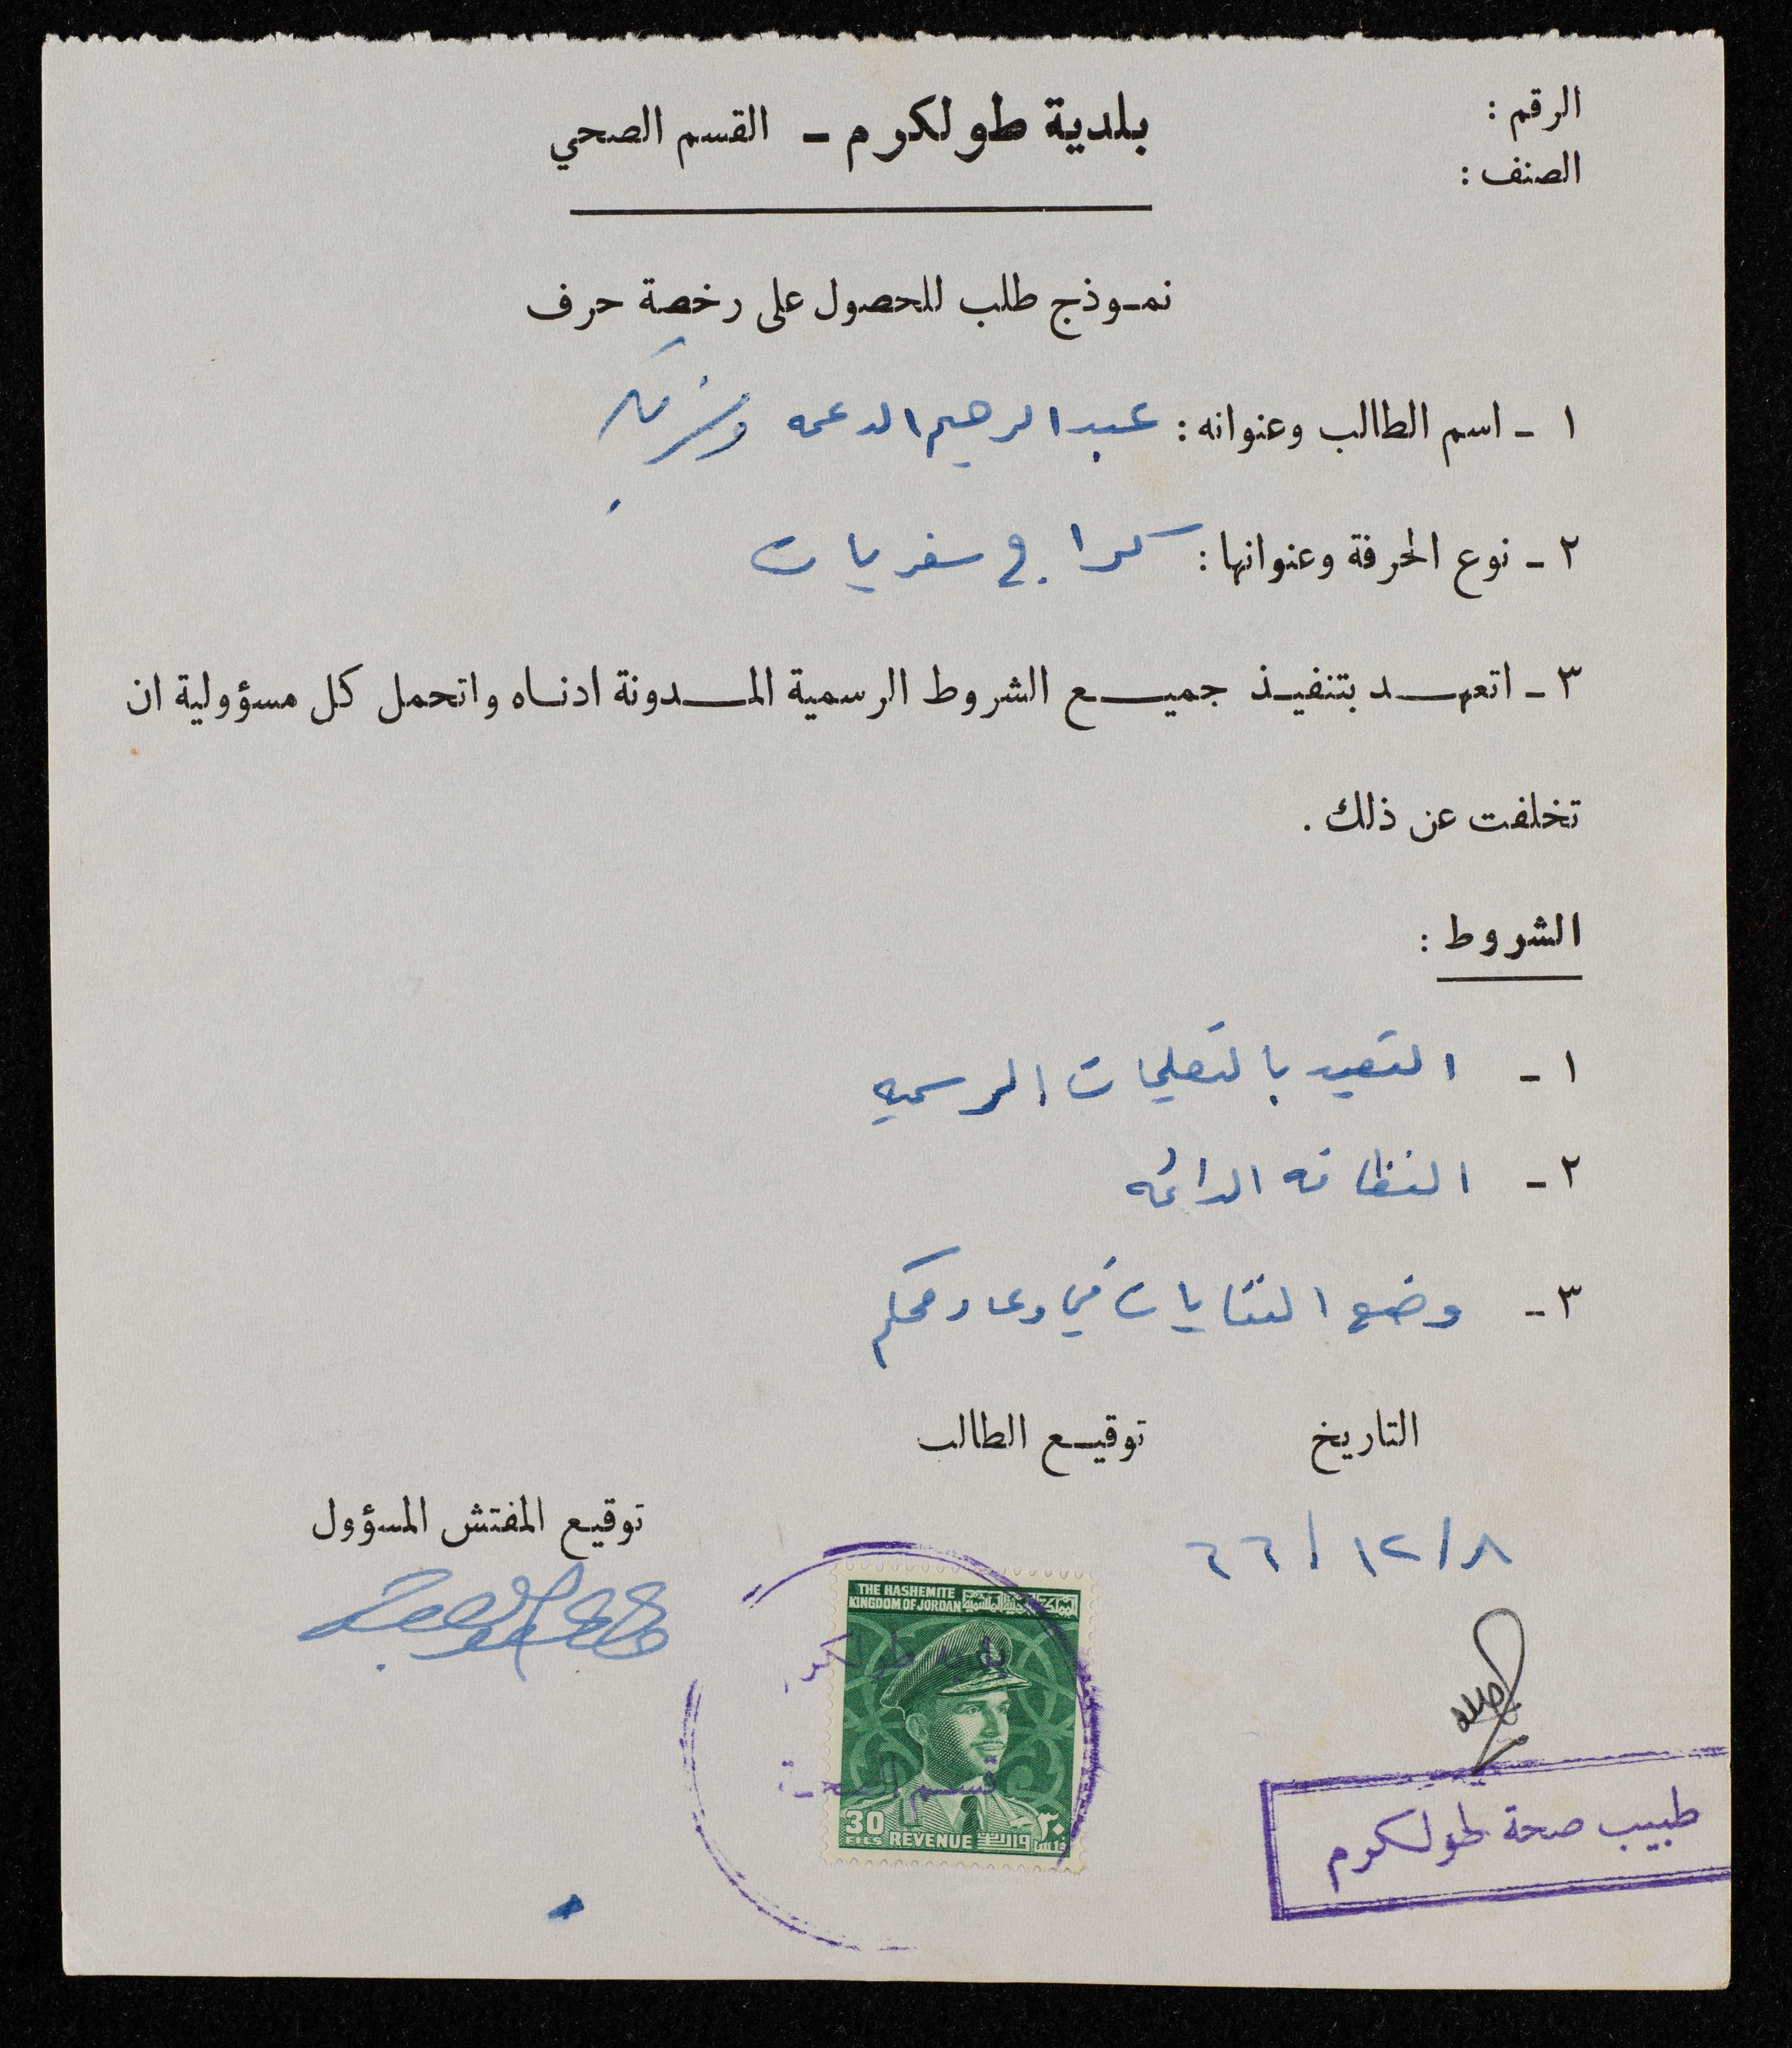 الرقم :
الصنف :
بلدية طولكرم - القسم الصحي
نموذج طلب للحصول على رخصة حرف
١ - اسم الطالب وعنوانه : عبد الرحيم الدعمه وشركاه
٢ - نوع الحرفة وعنوانها : كراج سفريات
٣ - اتعهد بتنفيذ جميع الشروط الرسمية المدونة ادناه واتحمل كل مسؤولية ان
تخلفت عن ذلك .
الشروط :
١ - التقيد بالتعليمات الرسميه
٢ - النظافه الدائمه
٣ - وضع النفايات في وعاء محكم
التاريخ
توقيع الطالب
توقيع المفتش المسؤول
٨/١٢/٦٦
THE HASHEMITE
KINGDOM OF JORDAN
المملكة الاردنية الهاشمية
بلدية طولكرم
قسم الصحة
30 FILS REVENUE ٣٠ فلس
طبيب صحة طولكرم